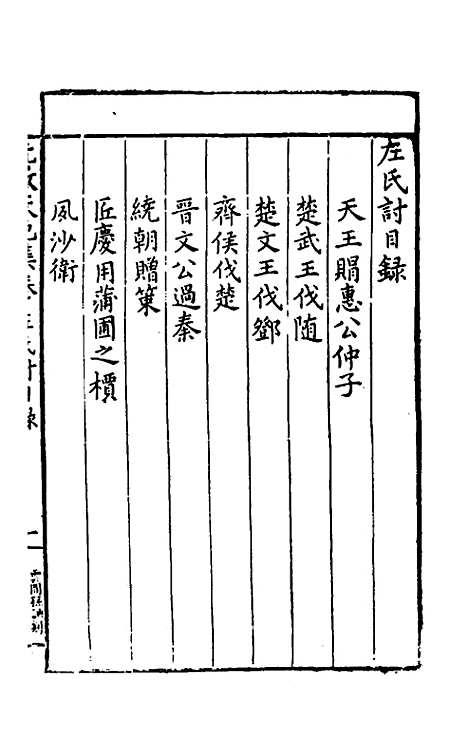 左氏討目録
天王賵惠公仲子
楚武王伐随
楚文王伐鄧
齊侯伐楚
晉文公過秦
繞朝贈策
匠慶用蒲圃之檟
夙沙衛